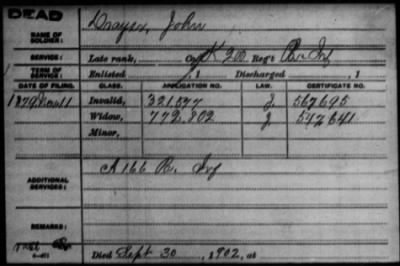 DEAD
NAME OF SOLDIER: Drayer, John
SERVICE: Late rank, Co. K 200 Reg't Pa. Inf
TERM OF SERVICE: Enlisted , 1 Discharged , 1
DATE OF FILING. CLASS. APPLICATION NO. LAW. CERTIFICATE NO.
1879 Invalid, 321,577 J. 567695
Widow, 772,802 J. 547641
Minor,
ADDITIONAL SERVICES: A 166 Pa. Inf
REMARKS:
Died Sept 30, 1902, at